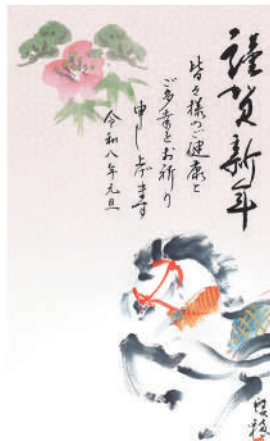 謹賀新年
皆々様のご健康と
ご多幸をお祈り
申し上げます
令和八年元旦